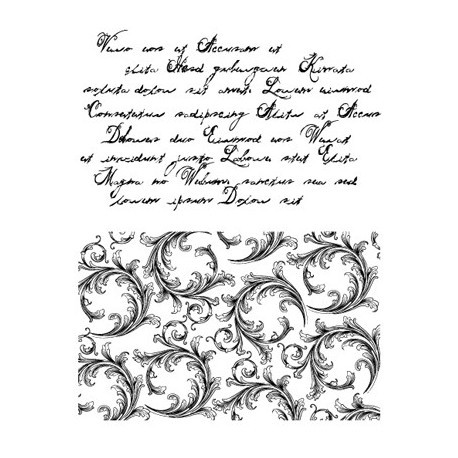 Vero eos et Accusam et
clita Kasd gubergren Kimata
soluta dolor sit amet. Lorem eiusmod
Consetetur sadipscing Elitr at Accus
Dolores duo Eiusmod eos Verat
et invidunt justo Labore stet Clita
Magna no Webum sanctus sea sed
lorem ipsum Dolor sit